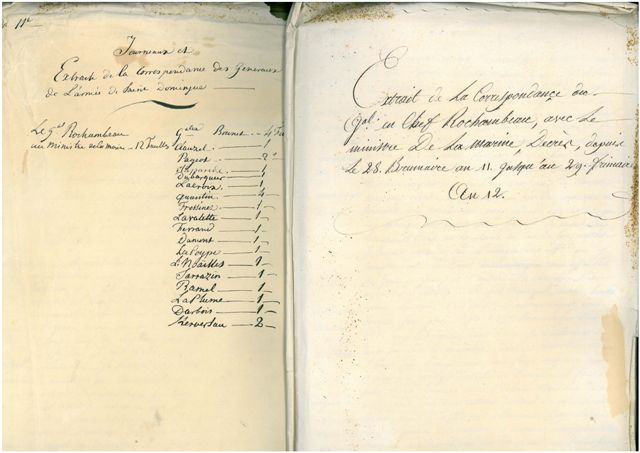 11e
Journeaux et
Extraits de la Correspondance des Généraux
de L'armée de Saint Domingue
Le Gal Rochambeau
au Ministre de la marine - 12 feuilles
Gaux Brunet -- 4 Fes
Clauzel — 1
Pageot — 2
d'apparée — 1
Dubarquier — 1
Lacroix — 1
Quantin — 4
Fressinet — 1
Lavalette — 1
Ferrand — 1
Dumont — 1
La Poype — 1
L. Noailles — 1
Sarrazin — 1
Ramel — 1
La Plume — 1
Darbois — 1
Kerversau — 2
Extrait de la Correspondance du
Gal. en Chef Rochambeau, avec le
ministre De La Marine, Decrès, depuis
Le 28. Brumaire an 11. jusqu'au 29. frimaire
An 12.